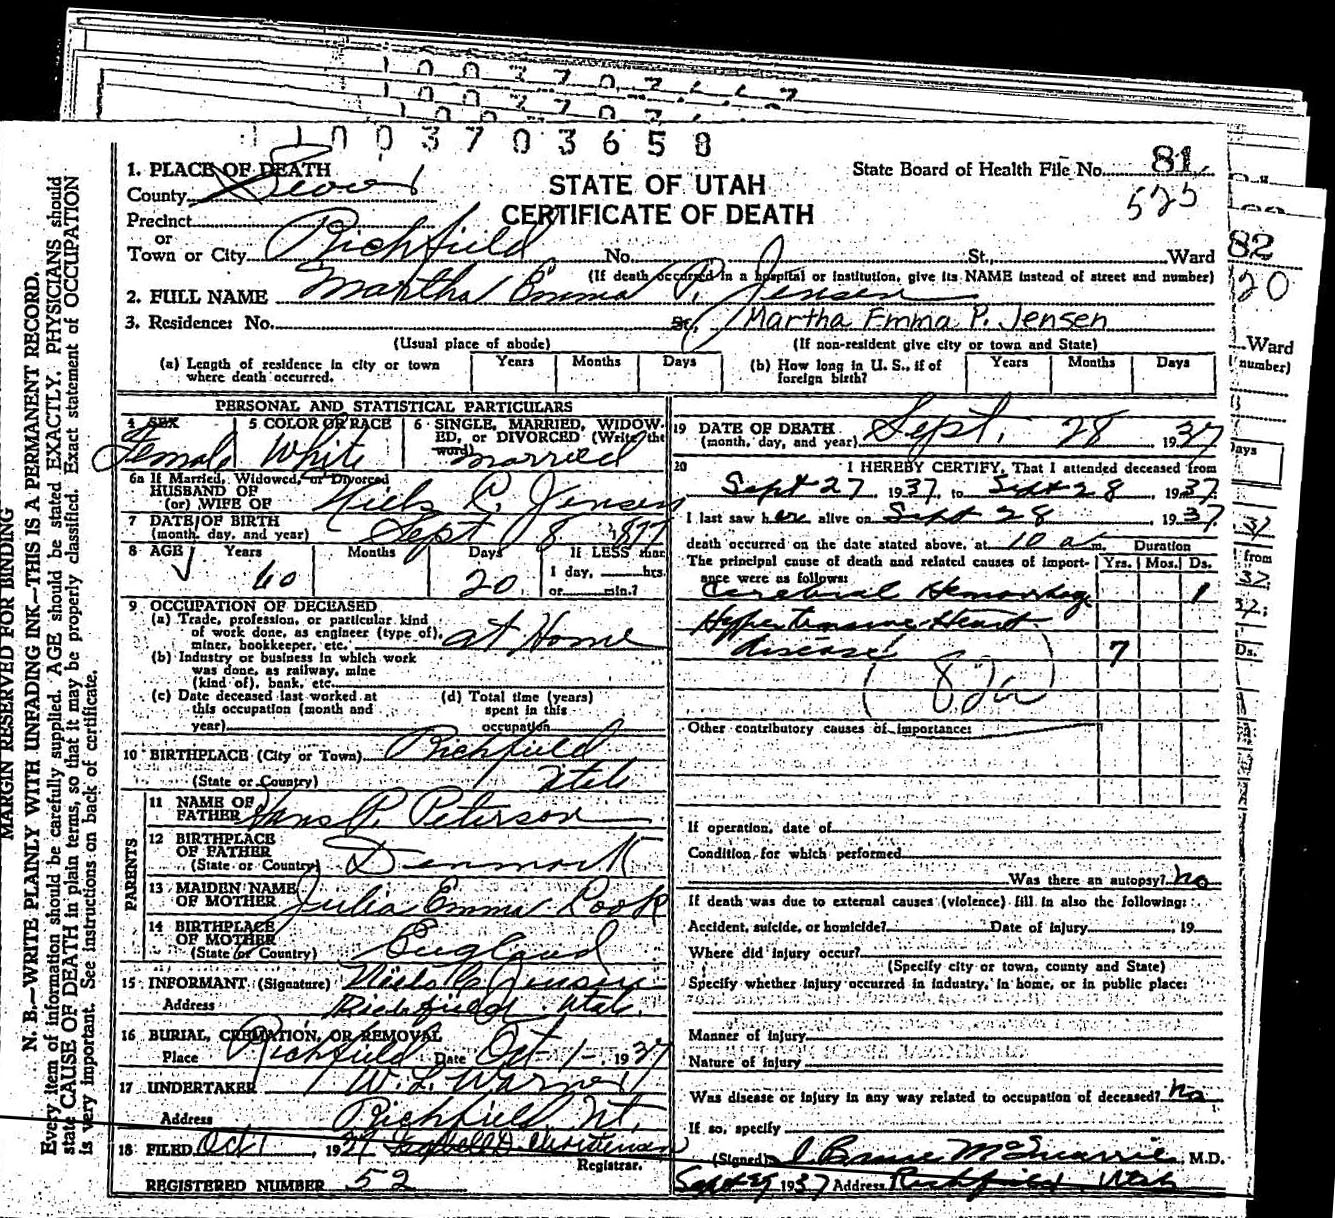 1 1 0 0 3 7 0 3 6 5 8
MARGIN RESERVED FOR BINDING
N. B.—WRITE PLAINLY WITH UNFADING INK—THIS IS A PERMANENT RECORD.
Every item of information should be carefully supplied. AGE should be stated EXACTLY. PHYSICIANS should
state CAUSE OF DEATH in plain terms, so that it may be properly classified. Exact statement of OCCUPATION
is very important. See instructions on back of certificate.
1. PLACE OF DEATH
County Sevier
Precinct
or
Town or City Richfield No. St., Ward
STATE OF UTAH
CERTIFICATE OF DEATH
State Board of Health File No. 81
525
(If death occurred in a hospital or institution, give its NAME instead of street and number)
2. FULL NAME Martha Emma P. Jensen
3. Residence: No. St. Martha Emma P. Jensen
(Usual place of abode) (If non-resident give city or town and State)
(a) Length of residence in city or town where death occurred. Years Months Days
(b) How long in U. S., if of foreign birth? Years Months Days
PERSONAL AND STATISTICAL PARTICULARS
4 SEX Female
5 COLOR OR RACE White
6 SINGLE, MARRIED, WIDOWED, or DIVORCED (Write the word) Married
6a If Married, Widowed, or Divorced
HUSBAND OF
(or) WIFE OF Niels C. Jensen
7 DATE OF BIRTH
(month, day, and year) Sept 8 1877
8 AGE Years 60 Months Days 20 If LESS than
1 day, hrs.
or min.?
9 OCCUPATION OF DECEASED
(a) Trade, profession, or particular kind
of work done, as engineer (type of),
miner, bookkeeper, etc. at Home
(b) Industry or business in which work
was done, as railway, mine
(kind of), bank, etc.
(c) Date deceased last worked at
this occupation (month and
year)
(d) Total time (years)
spent in this
occupation
10 BIRTHPLACE (City or Town) Richfield
(State or Country) Utah
PARENTS
11 NAME OF
FATHER Hans P. Peterson
12 BIRTHPLACE
OF FATHER
(State or Country) Denmark
13 MAIDEN NAME
OF MOTHER Julia Emma Cook
14 BIRTHPLACE
OF MOTHER
(State or Country) England
15 INFORMANT (Signature) Niels C. Jensen
Address Richfield Utah.
16 BURIAL, CREMATION, OR REMOVAL
Place Richfield Date Oct-1- 1937
17 UNDERTAKER W. L. Warner
Address Richfield, Ut.
18 FILED Oct 1, 1937 Christensen
Registrar.
REGISTERED NUMBER 52
19 DATE OF DEATH
(month, day, and year) Sept. 28 1937
20 I HEREBY CERTIFY, That I attended deceased from
Sept 27, 1937, to Sept 28, 1937.
I last saw her alive on Sept 28, 1937.
death occurred on the date stated above, at 10 a m. Duration
The principal cause of death and related causes of importance were as follows: Yrs. Mos. Ds.
Cerebral Hemorrhage 1
Hypertensive Heart
disease 7
(82a)
Other contributory causes of importance:
If operation, date of
Condition for which performed
Was there an autopsy? no
If death was due to external causes (violence) fill in also the following:
Accident, suicide, or homicide? Date of injury , 19
Where did injury occur?
(Specify city or town, county and State)
Specify whether injury occurred in industry, in home, or in public place:
Manner of injury
Nature of injury
Was disease or injury in any way related to occupation of deceased? no
If so, specify
(Signed) J. Bruce McQuarrie, M.D.
Sept 29 1937 Address Richfield Utah
82
20
Ward
number)
Days
from
Ds.